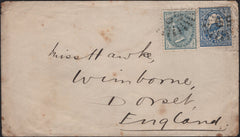 Miss Hawke,
Wimborne,
Dorset,
England.